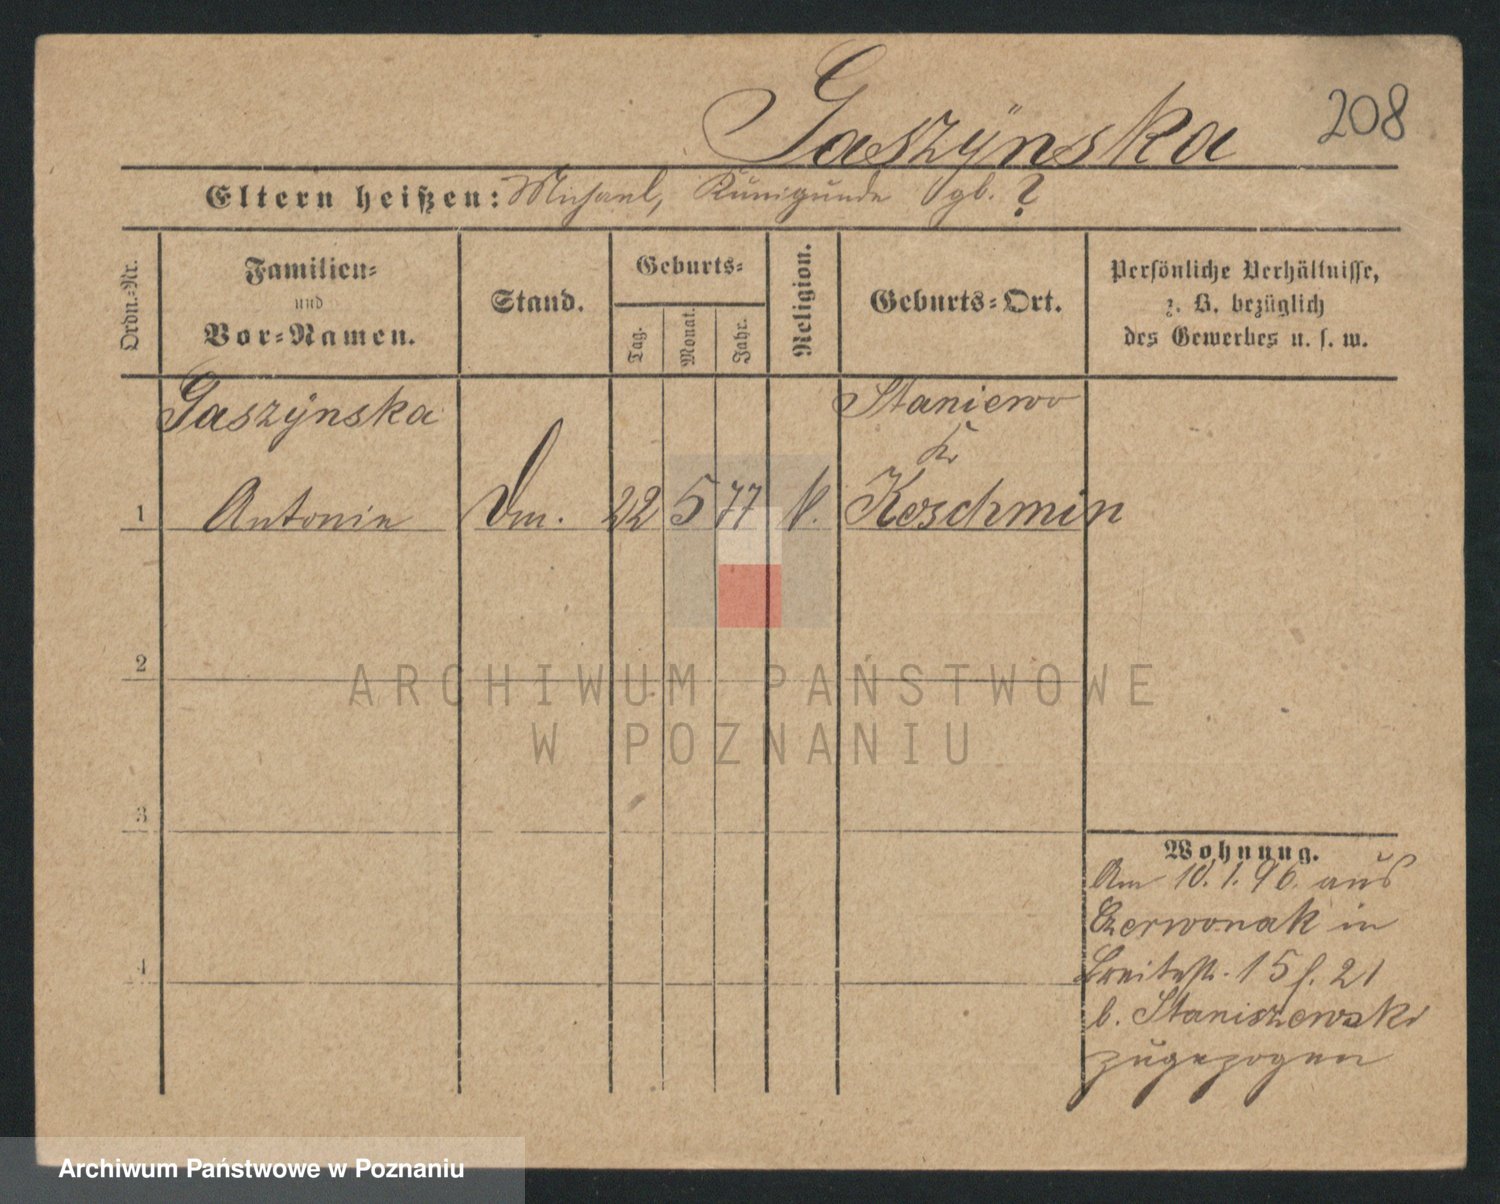 208
Gaszÿnska
Eltern heißen: Michael, Kunigunde gb. ?
Ordn.-Nr.
Familien-
und
Vor-Namen.
Stand.
Geburts-
Tag.
Monat.
Jahr.
Religion.
Geburts-Ort.
Persönliche Verhältnisse,
z. B. bezüglich
des Gewerbes u. s. w.
Gaszÿnska
Staniewo
Kr
1 Antonie Dm. 22 5 77 k. Koschmin
2
3
4
Wohnung.
Am 10. 1. 96. aus
Czerwonak in
Breitestr. 15 f. 21
b. Staniszewski
zugezogen
ARCHIWUM PAŃSTWOWE
W POZNANIU
Archiwum Państwowe w Poznaniu